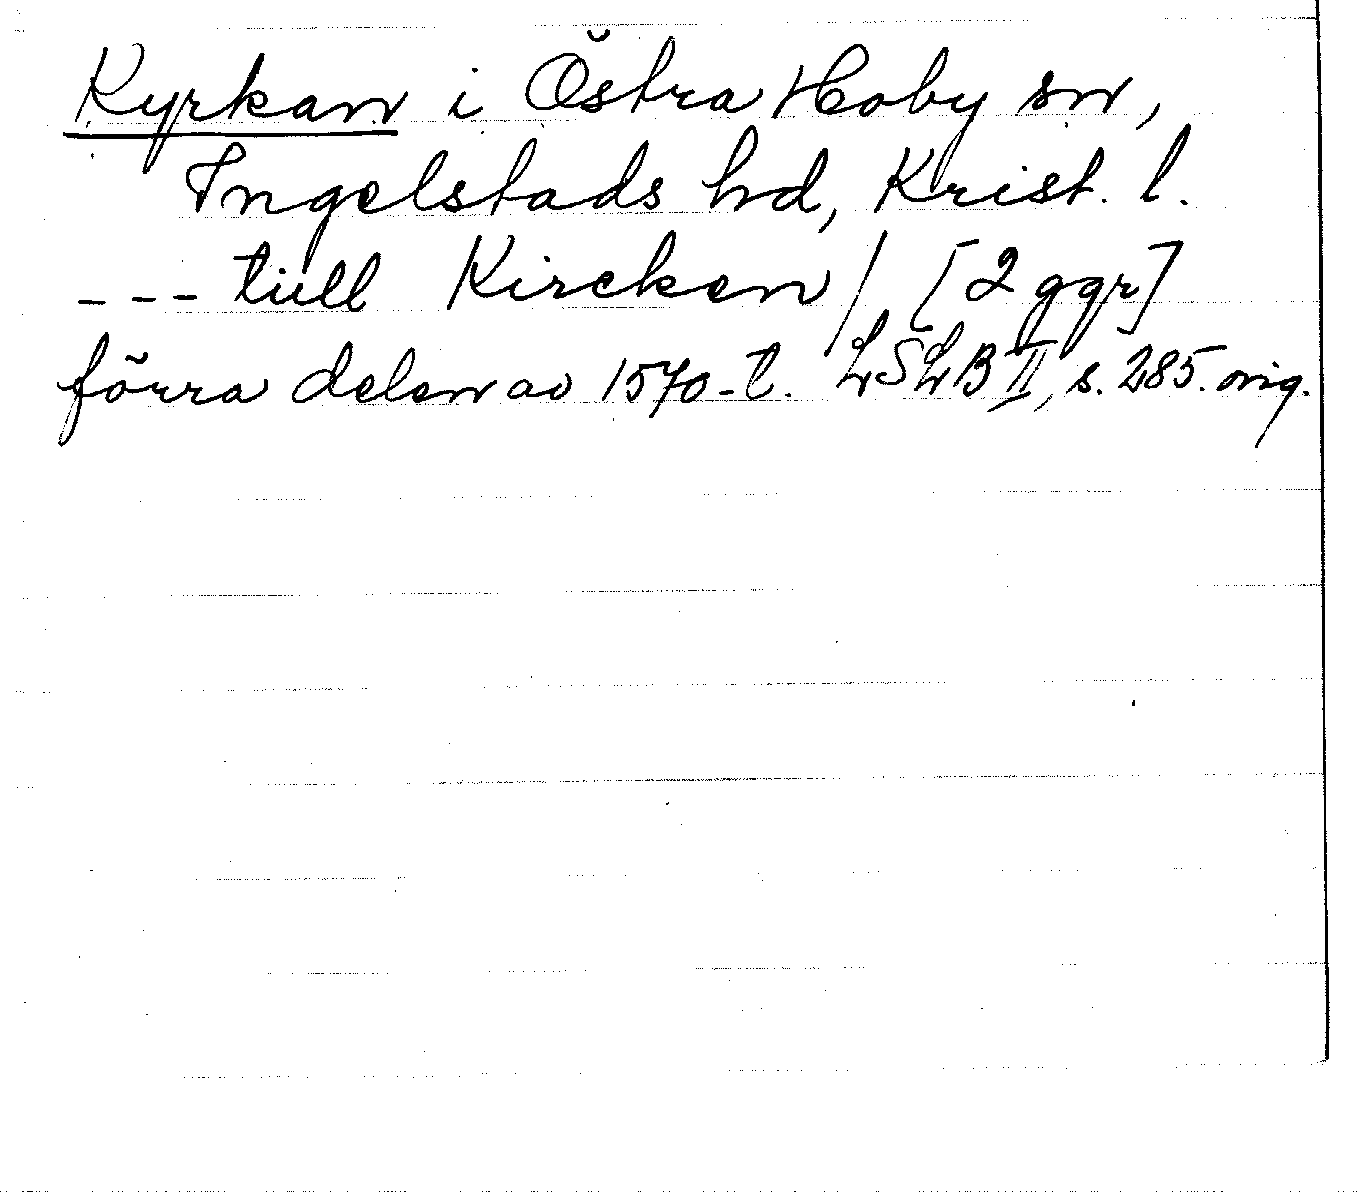 Kyrkan i Östra Hoby sn,
Ingelstads hd, Krist. l.
--- till Kircken / [2 ggr]
förra delen av 1570-t. LSLB II, s. 285. orig.